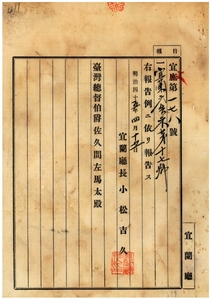 宜廳第一七八號
種目
右報告例ニ依リ報告ス
明治四十五年四月十
宜蘭廳長 小松吉久
臺灣總督伯爵佐久間左馬太殿
宜蘭廳